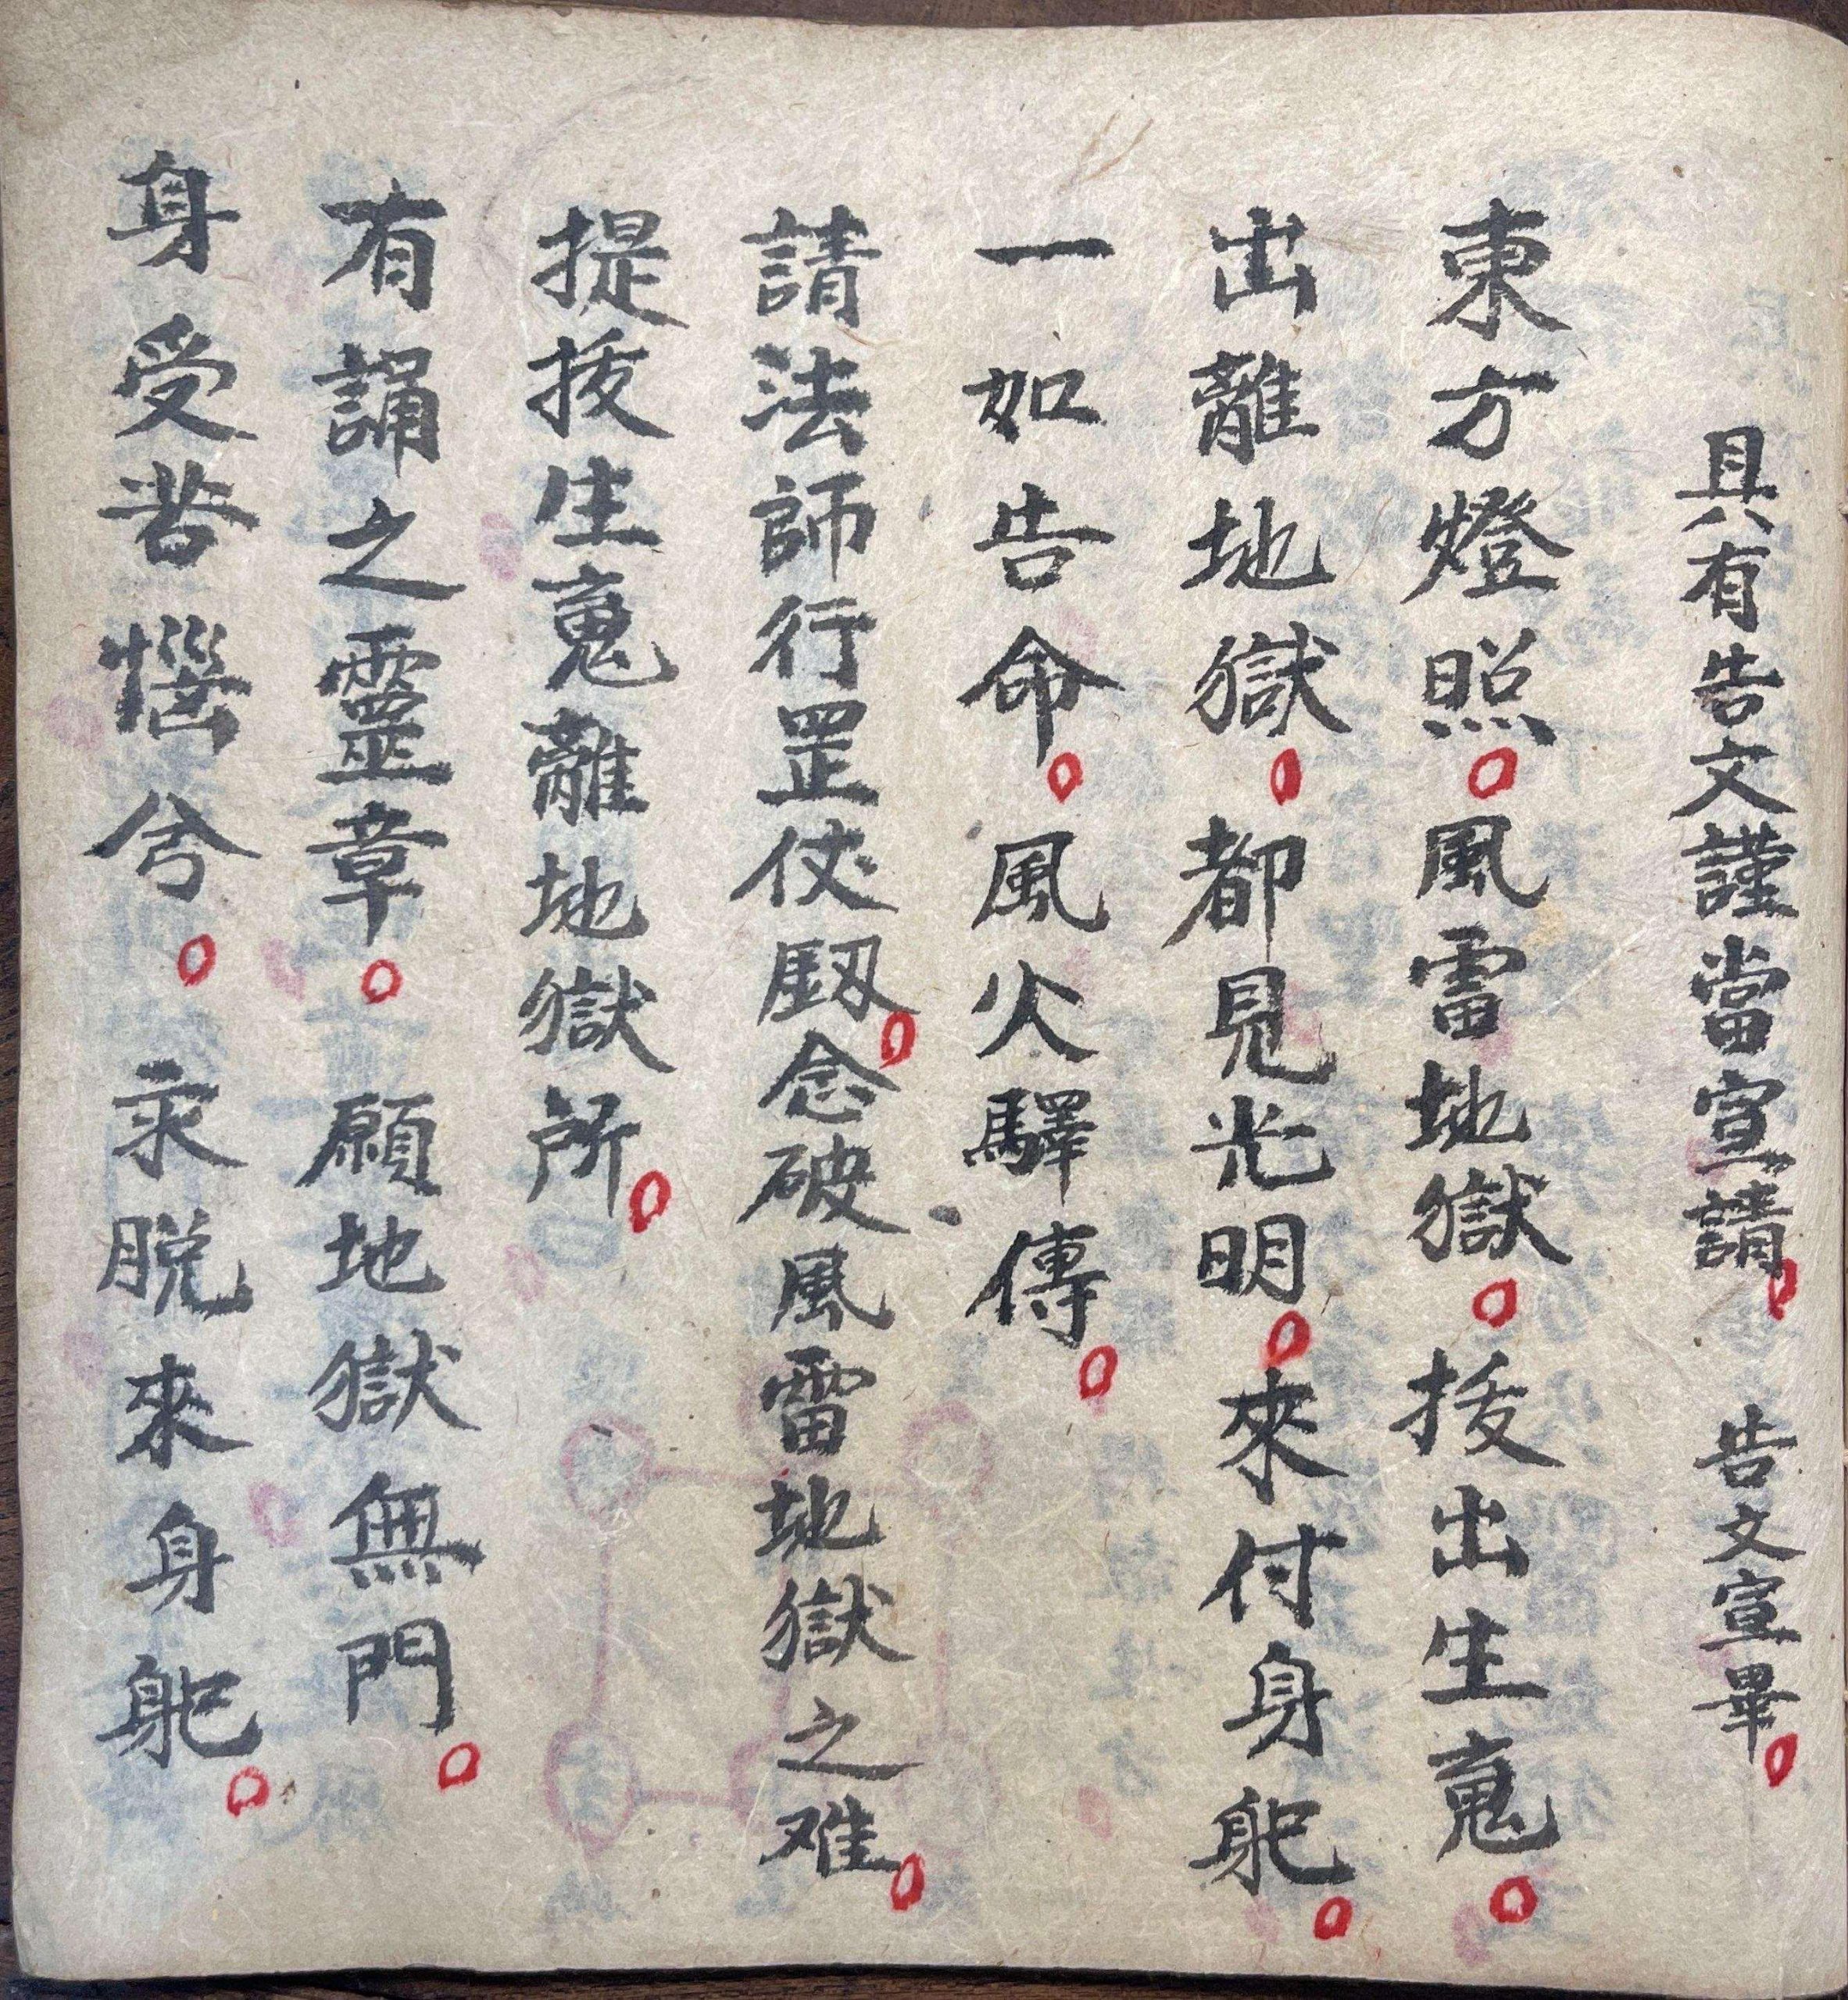 具有告文謹當宣請。告文宣畢。
東方燈照。風雷地獄。拔出生䰟。
出離地獄。都見光明。來付身躰。
一如告命。風火驛傳。
請法師行罡仗劔。念破風雷地獄之难。
提拔生䰟離地獄所。
有誦之靈章。願地獄無門。
身受苦惱兮。求脫來身躰。